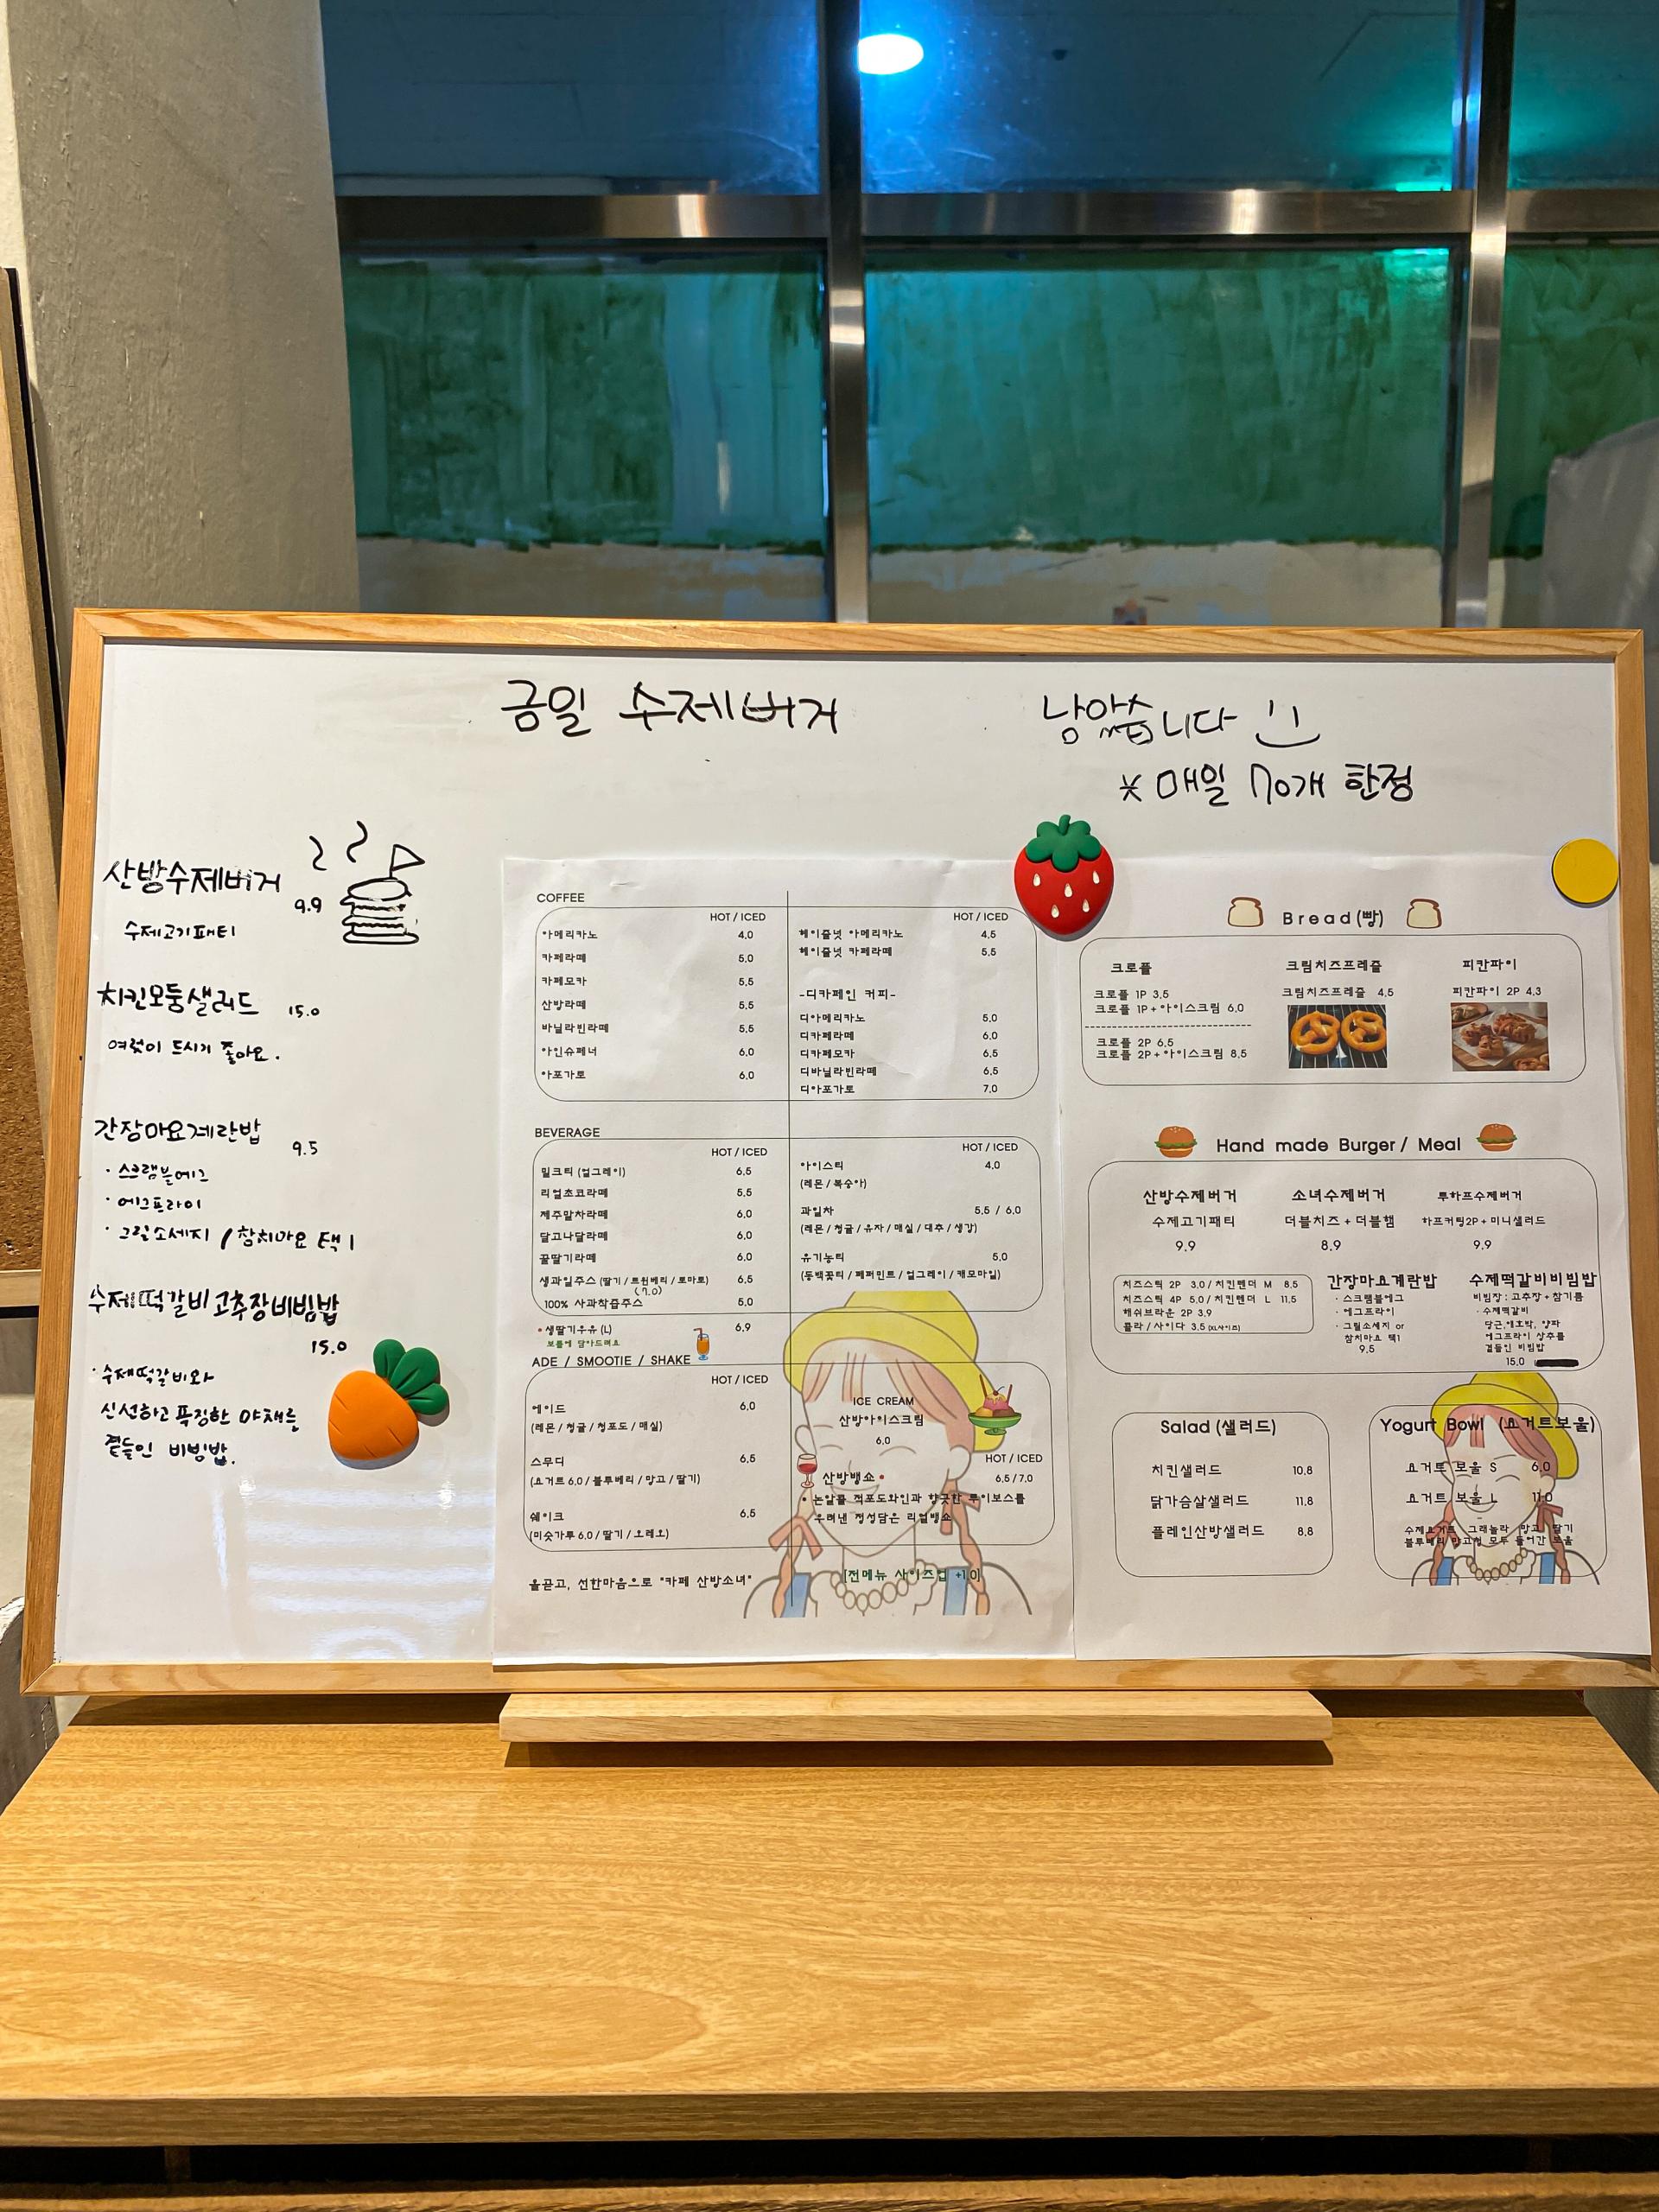 금일 수제버거 남았습니다
* 매일 70개 한정
산방수제버거
9.9
수제고기패티
치킨모둠샐러드 15.0
여럿이 드시기 좋아요.
간장마요계란밥 9.5
· 스크램블에그
· 에그프라이
· 그릴소세지 / 참치마요 택1
수제떡갈비고추장비빔밥
15.0
· 수제떡갈비와
신선하고 푹징한 야채를
곁들인 비빔밥.
COFFEE
HOT / ICED
아메리카노 4.0
카페라떼 5.0
카페모카 5.5
산방라떼 5.5
바닐라빈라떼 5.5
아인슈페너 6.0
아포가토 6.0
HOT / ICED
헤이즐넛 아메리카노 4.5
헤이즐넛 카페라떼 5.5
-디카페인 커피-
디아메리카노 5.0
디카페라떼 6.0
디카페모카 6.5
디바닐라빈라떼 6.5
디아포가토 7.0
BEVERAGE
HOT / ICED
밀크티 (얼그레이) 6.5
리얼초코라떼 5.5
제주말차라떼 6.0
달고나달라떼 6.0
꿀딸기라떼 6.0
생과일주스 (딸기 / 트윈베리 / 토마토) 6.5
(7.0)
100% 사과착즙주스 5.0
• 생딸기우유 (L) 6.9
보틀에 담아드려요
HOT / ICED
아이스티 4.0
(레몬 / 복숭아)
과일차 5.5 / 6.0
(레몬 / 청귤 / 유자 / 매실 / 대추 / 생강)
유기농티 5.0
(동백꽃티 / 페퍼민트 / 얼그레이 / 캐모마일)
ADE / SMOOTIE / SHAKE
HOT / ICED
에이드 6.0
(레몬 / 청귤 / 청포도 / 매실)
스무디 6.5
(요거트 6.0 / 블루베리 / 망고 / 딸기)
쉐이크 6.5
(미숫가루 6.0 / 딸기 / 오레오)
ICE CREAM
산방아이스크림
6.0
HOT / ICED
산방뱅쇼 • 6.5 / 7.0
• 논알콜 적포도와인과 향긋한 루이보스를
우려낸 정성담은 리얼뱅쇼
올곧고, 선한마음으로 "카페 산방소녀"
[전메뉴 사이즈업 +1.0]
Bread (빵)
크로플
크로플 1P 3.5
크로플 1P + 아이스크림 6.0
크로플 2P 6.5
크로플 2P + 아이스크림 8.5
크림치즈프레즐
크림치즈프레즐 4.5
피칸파이
피칸파이 2P 4.3
Hand made Burger / Meal
산방수제버거
수제고기패티
9.9
소녀수제버거
더블치즈 + 더블햄
8.9
루하프수제버거
하프커팅2P + 미니샐러드
9.9
치즈스틱 2P 3.0 / 치킨텐더 M 8.5
치즈스틱 4P 5.0 / 치킨텐더 L 11.5
해쉬브라운 2P 3.9
콜라 / 사이다 3.5 (XL사이즈)
간장마요계란밥
· 스크램블에그
· 에그프라이
· 그릴소세지 or
참치마요 택1
9.5
수제떡갈비비빔밥
비빔장 : 고추장 + 참기름
· 수제떡갈비
당근, 애호박, 양파
에그프라이 상추를
곁들인 비빔밥
15.0
Salad (샐러드)
치킨샐러드 10.8
닭가슴살샐러드 11.8
플레인산방샐러드 8.8
Yogurt Bowl (요거트보울)
요거트 보울 S 6.0
요거트 보울 L 11.0
수제요거트 그래놀라 망고 딸기
블루베리 망고청 모두 들어간 보울